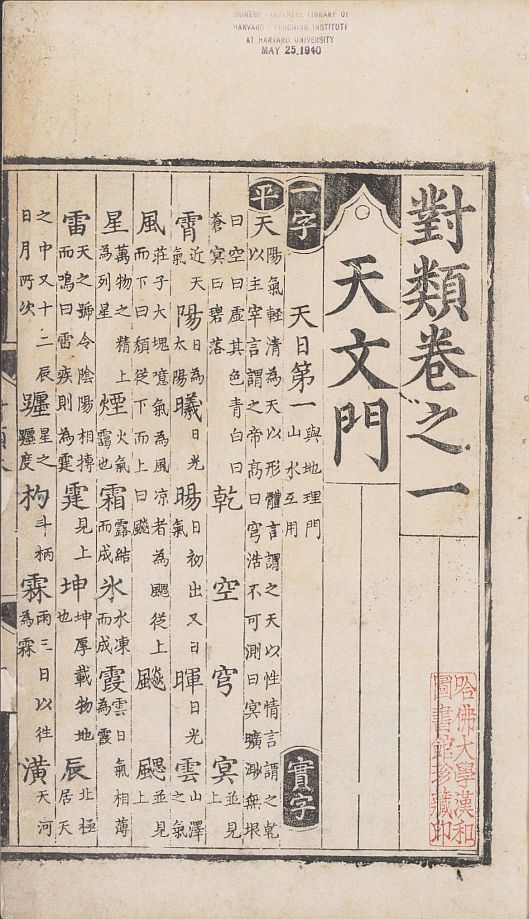 CHINESE - JAPANESE LIBRARY OF
HARVARD - YENCHING INSTITUTE
AT HARVARD UNIVERSITY
MAY 25 1940
對類卷之一
天文門
一字 天日第一 與地理門山水互用 實字
平 天 陽氣輕清為天以形體言謂之天以性情言謂之乾以主宰言謂之帝高曰穹浩不可測曰冥曠渺無垠
曰空曰虛其色青白曰蒼冥曰碧落 乾 空 穹 冥 並見上
霄 近天氣 陽 日為太陽 曦 日光 暘 日初出又日氣 暉 日光 雲 山澤之氣
風 莊子大塊噫氣為風凉者為颸從上而下曰頹從下而上曰飈 飈 颸 並見上
星 萬物之精上為列星 煙 火氣靄也 霜 露結而成 氷 水凍而成 霞 雲日氣相薄為霞
雷 天之號令陰陽相搏而鳴曰雷疾則為霆 霆 見上 坤 坤厚載物地也 辰 北極居天
之中又十二辰日月所次 躔 星之躔度 杓 斗柄 霖 雨三日以往為霖 潢 天河
哈佛大學漢和
圖書館珍藏印